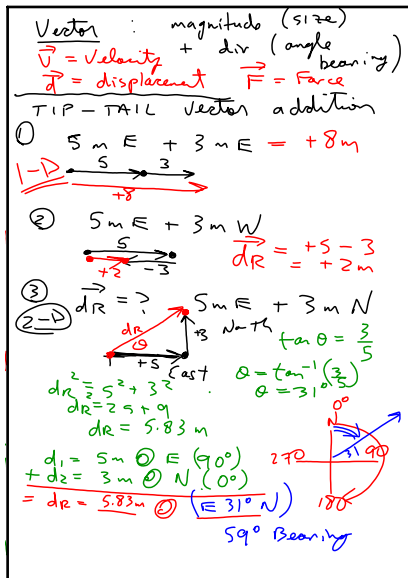 Vector : magnitude (size)
+ dir (angle bearing)
V = Velocity
d = displacement F = Force
TIP-TAIL vector addition
① 5 m E + 3 m E = +8m
1-D 5 3
+8
② 5 m E + 3 m W
5
+2 -3
dR = +5 - 3
= + 2 m
③ dR = ? 5 m E + 3 m N
2-D dR θ +3 North
+5 East
tan θ = 3/5
θ = tan⁻¹ (3/5)
θ = 31°
dR² = 5² + 3²
dR² = 25 + 9
dR = 5.83 m
0°
N
270 31 90
180°
d1 = 5m @ E (90°)
+ d2 = 3m @ N (0°)
= dR = 5.83m @ (E 31° N)
59° Bearing